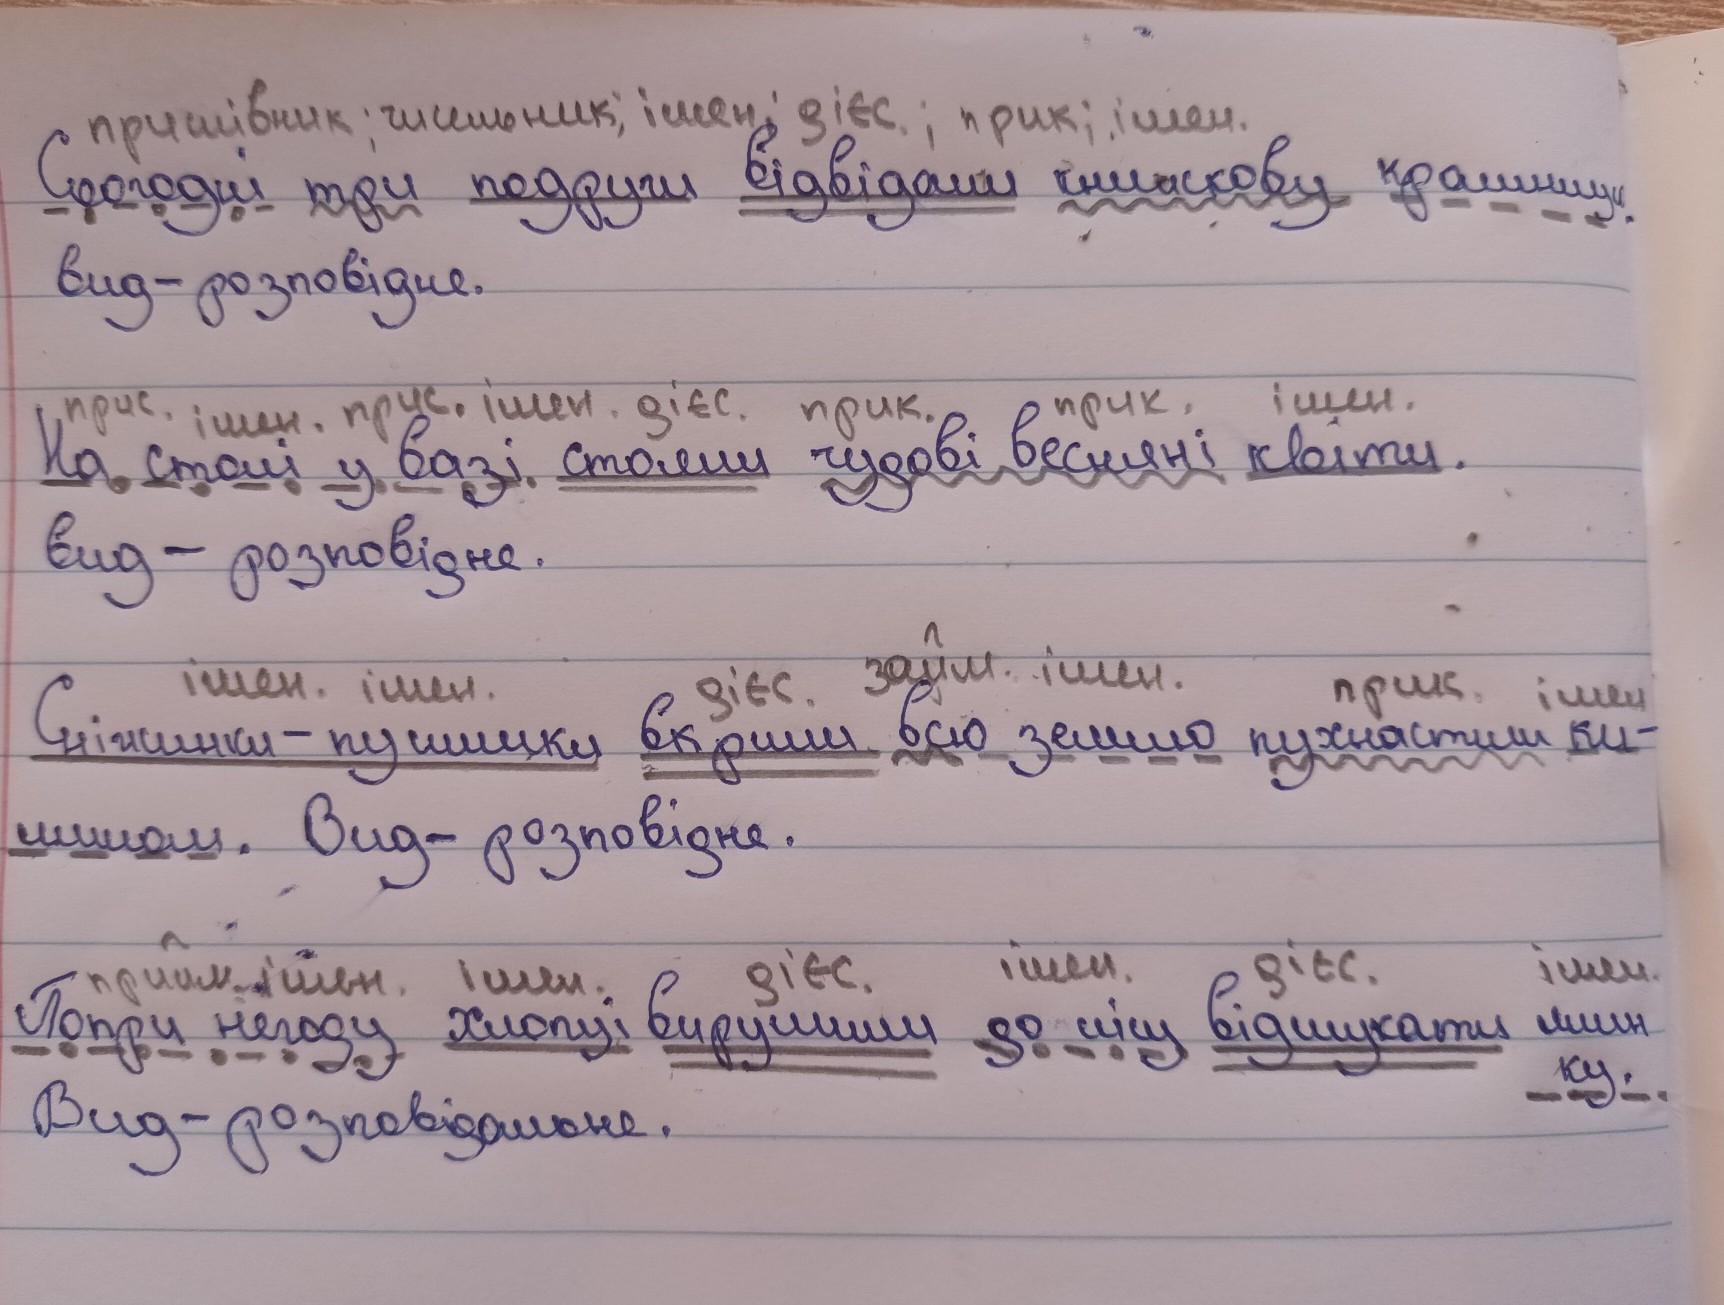 прислівник; числівник; імен; дієс.; прик; імен.
Сьогодні три подруги відвідали книжкову крамницю.
вид – розповідне.
прис. імен. прис. імен. дієс. прик. прик. імен.
На столі у вазі стояли чудові весняні квіти.
вид – розповідне.
імен. імен. дієс. займ. імен. прик. імен
Сніжинки-пушинки вкрили всю землю пухнастим ки-
лимом. Вид – розповідне.
прийм. імен. імен. дієс. імен. дієс. імен.
Попри негоду хлопці вирушили до лісу відшукати ялин
ку.
Вид – розповідальне.